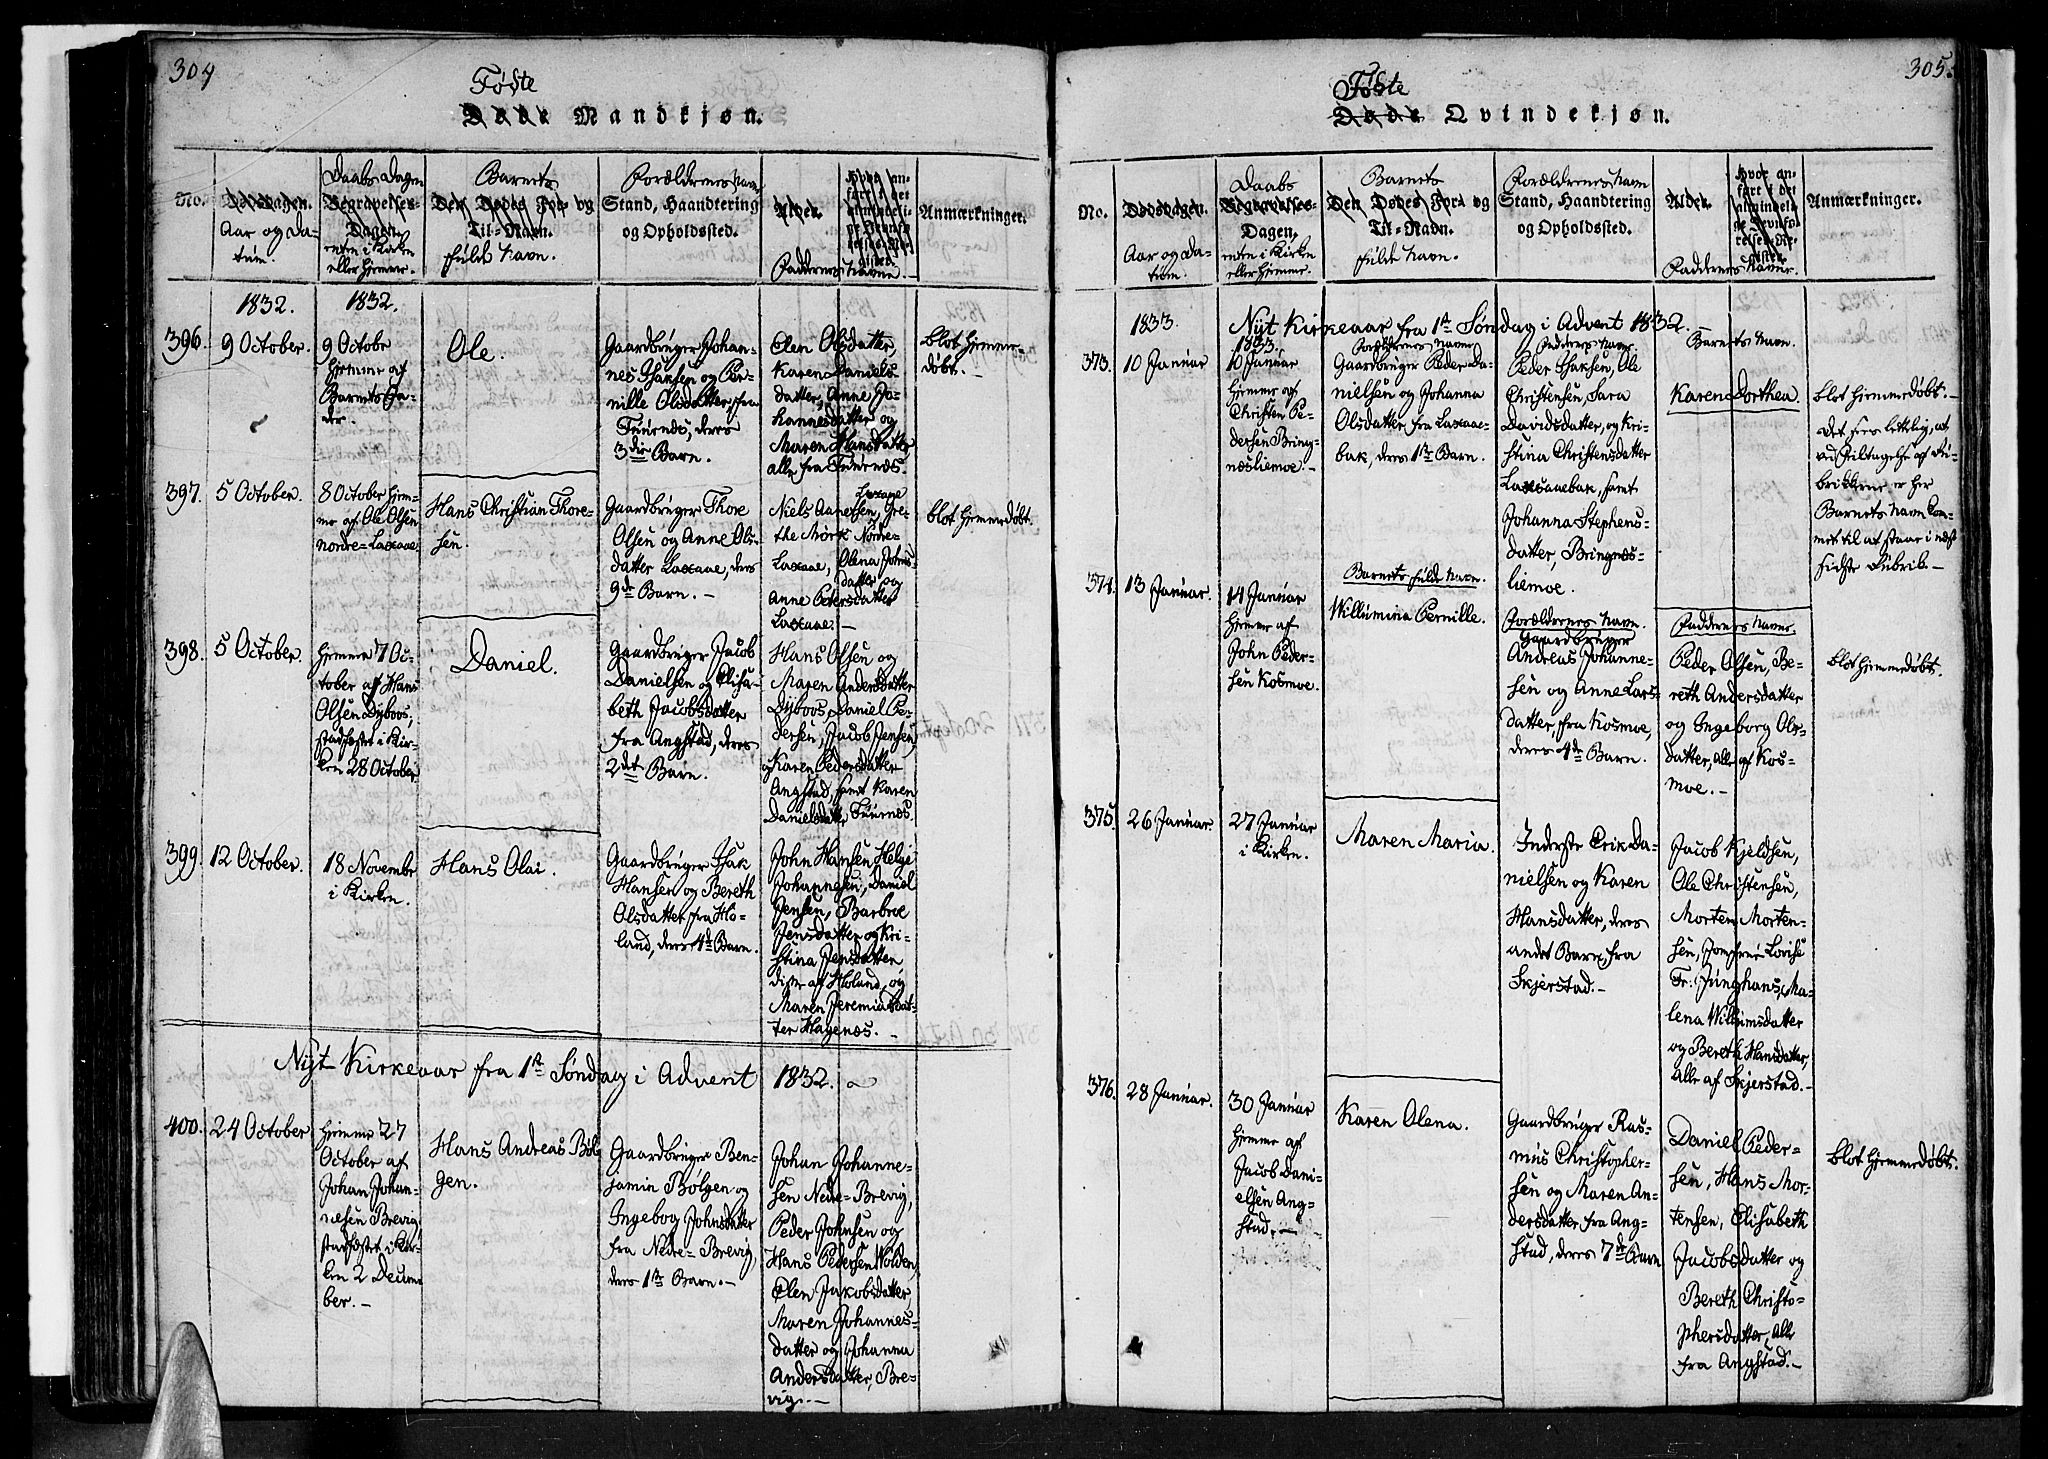 304
Føste
Døde Mandkjøn.
No.
Dødsdagen.
Aar og Da-
tum.
Daabs Dagen
Begravelses-
Dagen.
enten i Kirken
eller hjemme.
Barnets
Den Dødes For- og
Til-Navn.
fulde Navn.
Forældrenes Navn
Stand, Haandtering
og Opholdssted.
Alder.
Hvor an-
ført i det
almindeli-
ge Jevnfø-
relses-Re-
gister.
Faddernes Navne.
Anmærkninger.
1832.
1832.
396.
9 October.
9 Octobr
hjemme af
Barnets Fa-
der.
Ole.
Gaardbruger Johan-
nes Isaksen og Per-
nille Olsdatter fra
Tuurnes, deres
3die Barn.
Elen Olsdatter,
Karen Daniels-
datter, Anne Jo-
hannesdatter og
Maren Hansdatter
alle fra Tuurnes.
blot hjemme-
døbt. -
397.
5 October.
8 October hjem-
me af Ole Olsen
nordre-Laxaae.
Hans Christian Thore-
sen.
Gaardbruger Thore
Olsen og Anne Ols-
datter Laxaae, deres
9de Barn. -
Laxaae
Niels Aanessen, Gre-
the Mørk Nordre-
Laxaae, Olena Johns-
datter og
Anne Pedersdatter
Laxaae. -
blot hjemmedøbt.
398.
5 October.
hjemme 7 Oc-
tober af Hans
Olsen Dyboos,
stadfæstet i Kir-
ken 28 October
Daniel.
Gaardbruger Jacob
Danielsen og Elisa-
beth Jacobsdatter
fra Angstad, deres
2det Barn.
Hans Olsen og
Maren Andersdatter
Dyboos, Daniel Pe-
dersen, Jacob Jensen,
og Karen Pedersdatter
Angstad, samt Karen
Danielsdatter Tuurnes.
399.
12 October.
18 Novembr
i Kirken.
Hans Olai.
Gaardbruger Isak
Hansen og Bereth
Olsdatter fra Ho-
land, deres 4de Barn.
John Hansen, Helge
Johannesen, Daniel
Jensen, Barbroe
Jensdatter og Kri-
stina Jensdatter
disse af Holand, og
Maren Jeremiasdat-
ter Hagenæs. -
Nyt Kirkeaar fra 1ste Søndag i Advent 1832.
400.
24 October
hjemme 27
October af
Johan Johan-
nesen Brevig,
stadfæstet i Kir-
ken 2 Decem-
ber. -
Hans Andreas Bøl-
gen.
Gaardbruger Ben-
jamin Bølgen og
Ingebog Johnsdatter
fra Nedre-Brevig,
deres 1ste Barn. -
Johan Johanne-
sen Nedre-Brevig,
Peder Johnsen og
Hans Pedersen Volden,
Elen Jakobsdatter,
Maren Johannes-
datter og Johanna
Andersdatter, Bre-
vig. -
305.
Føste
Døde Qvindekjøn.
No.
Dødsdagen.
Aar og Da-
tum.
Daabs
Begravelses-
Dagen.
enten i Kirken
eller hjemme.
Barnets
Den Dødes For- og
Til-Navn.
fulde Navn.
Forældrenes Navn
Stand, Haandtering
og Opholdssted.
Alder.
Hvor an-
ført i det
almindeli-
ge Jevnfø-
relses-Re-
gister.
Faddernes Navne.
Anmærkninger.
Nyt Kirkeaar fra 1ste Søndag i Advent 1832. -
1833.
1833.
Forældrenes Navne
Faddernes Navne.
Barnets Navn.
373.
10 Januar
10 Januar
hjemme af
Christen Pe-
dersen Bring-
nesliemoe. -
Gaardbruger Peder Da-
nielsen og Johanna
Olsdatter fra Laxaae-
bak, deres 1ste Barn.
Peder Isaksen, Ole
Christensen, Sara
Davidsdatter, og Kri-
stina Christensdatter
Laxaaebak, samt
Johanna Stephens-
datter, Bringnes-
liemoe.
Karen Dorthea.
blot hjemmedøbt. -
Det sees letteligt at
ved Iiltagelse af Ru-
brikkerne er her
Barnets Navn kom-
met til at staae i næst
sidste Rubrik. -
374.
13 Januar.
14 Januar
hjemme af
John Peder-
sen Kosmoe.
Barnets fulde Navn.
Willumina Pernille.
Forældrenes Navn.
Gaardbruger
Andreas Johanne-
sen og Anne Lars-
datter, fra Kosmoe,
deres 4de Barn.
Faddernes Navne.
Peder Olsen, Be-
reth Andersdatter
og Ingeborg Ols-
datter, alle af Kos-
moe. -
blot hjemmedøbt.
375.
26 Januar.
27 Januar
i Kirken.
Maren Maria.
Inderste Erik Da-
nielsen og Karen
Hansdatter, deres
andet Barn, fra
Skjerstad. -
Jacob Kjeldsen,
Ole Christensen,
Morten Morten-
sen, Jomfrue Lovise
Fr: Junghans, Ma-
lena Willumsdatter
og Bereth Hansdatter,
alle af Skjerstad. -
376.
28 Januar.
30 Januar
hjemme af
Jacob Dani-
elsen Ang-
stad. -
Karen Olena.
Gaardbruger Ras-
mus Christopher-
sen og Maren An-
dersdatter fra Ang-
stad, deres 7de Barn
Daniel Peder-
sen, Hans Mor-
tensen, Elisabeth
Jacobsdatter og
Bereth Christo-
phersdatter, alle
fra Angstad. -
blot hjemmedøbt.